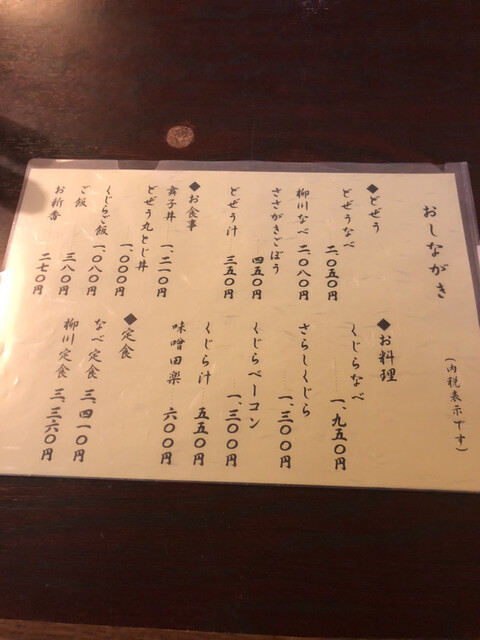 おしながき
（内税表示です）
◆どぜう
どぜうなべ
二、〇五〇円
柳川なべ 二、〇八〇円
ささがきごぼう
四五〇円
どぜう汁 三五〇円
◆お食事
舞子丼 一、二一〇円
どぜう丸とじ丼
一、〇〇〇円
くじらご飯
一、〇八〇円
ご飯 三八〇円
お新香 二七〇円
◆お料理
くじらなべ
一、九五〇円
さらしくじら
一、三〇〇円
くじらベーコン
一、三〇〇円
くじら汁 五五〇円
味噌田楽 六〇〇円
◆定食
なべ定食 三、四一〇円
柳川定食 三、三六〇円